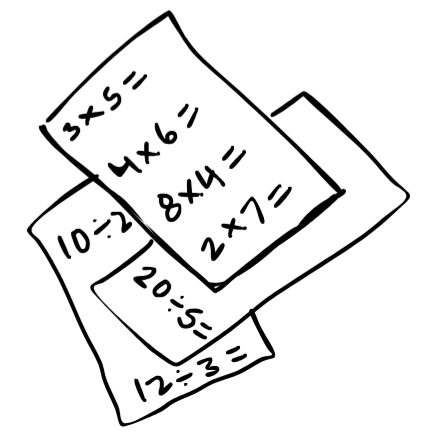 3×5=
4×6=
8×4=
2×7=
10÷2
20÷5=
12÷3=